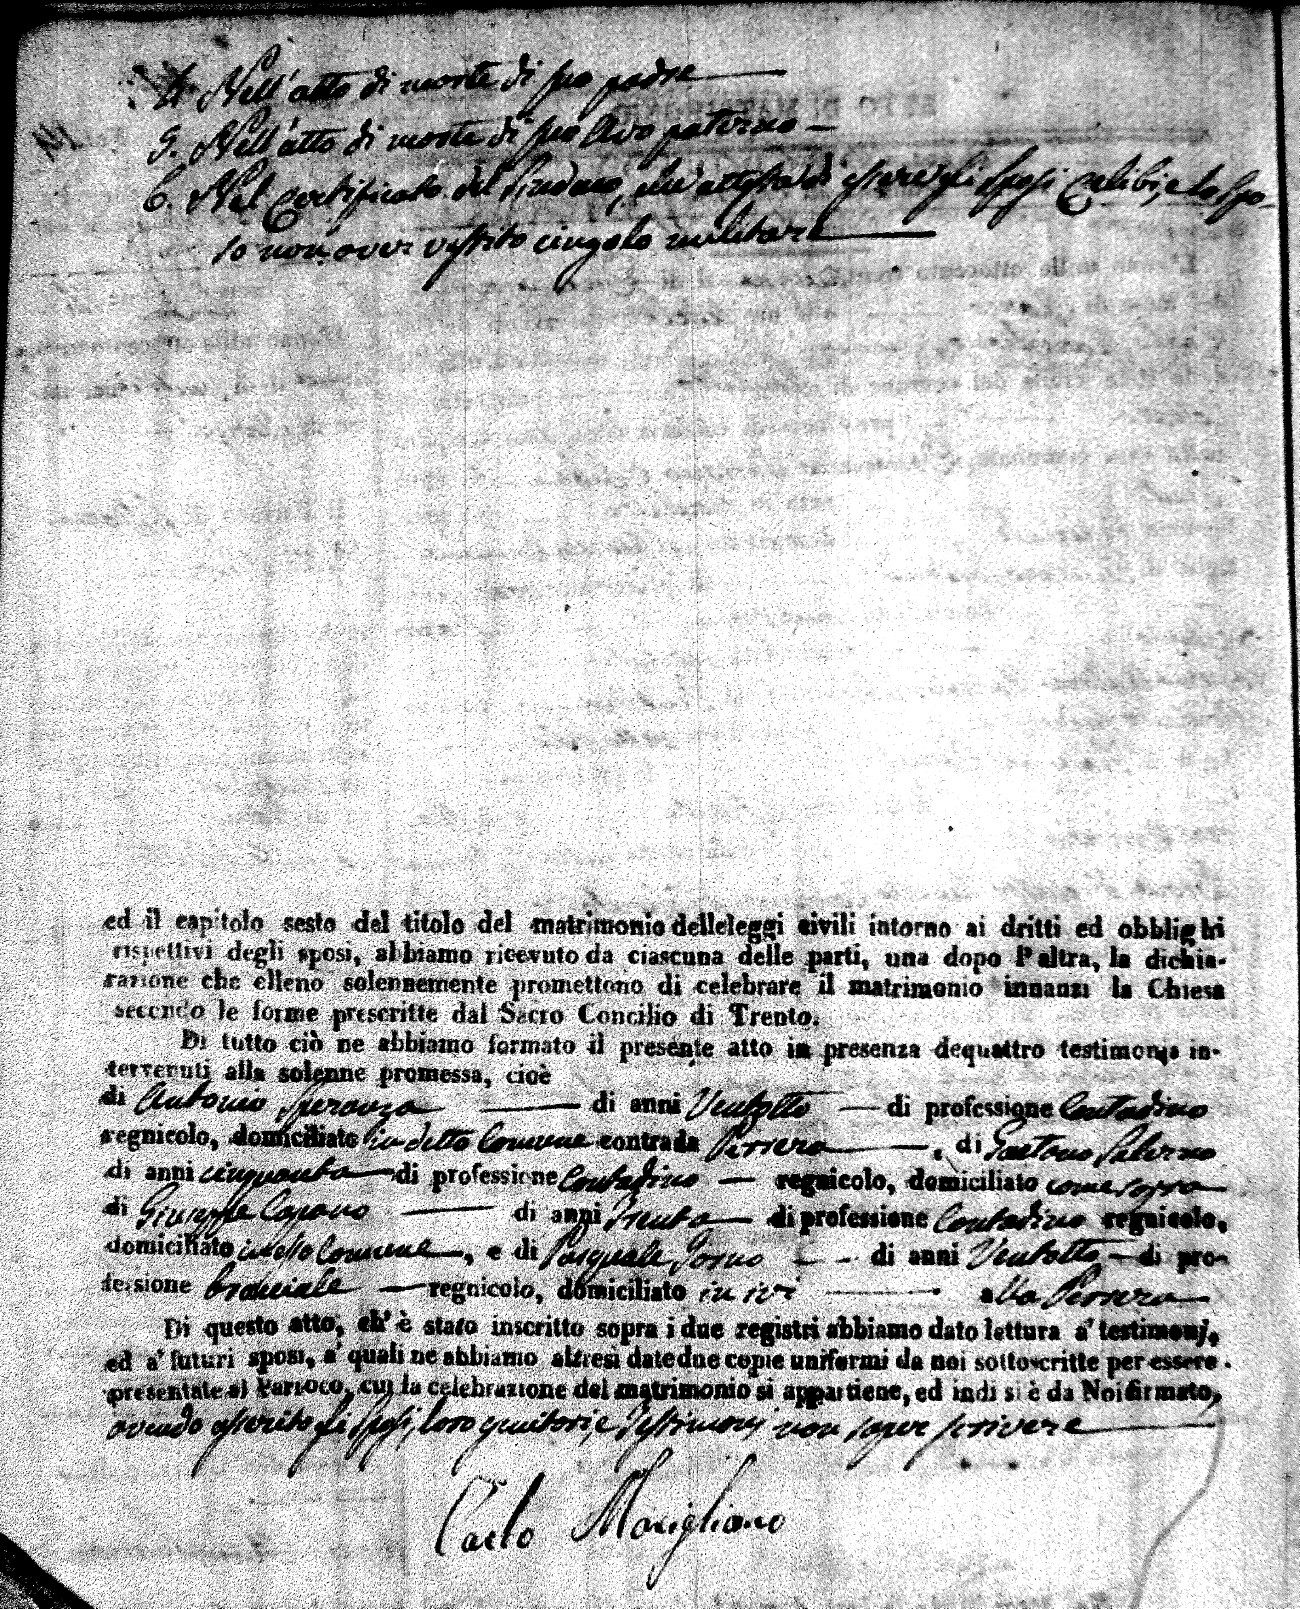 4. Nell'atto di morte di suo padre
5. Nell'atto di morte di suo Avo paterno
6. Nel Certificato del Sindaco, che attesta di essere gli Sposi Celibi, e lo Spo-
so non aver vestito cingolo militare
ed il capitolo sesto del titolo del matrimonio delleleggi civili intorno ai dritti ed obblighi
rispettivi degli sposi, abbiamo ricevuto da ciascuna delle parti, una dopo l'altra, la dichia-
razione che elleno solennemente promettono di celebrare il matrimonio innanzi la Chiesa
secondo le forme prescritte dal Sacro Concilio di Trento.
Di tutto ciò ne abbiamo formato il presente atto in presenza dequattro testimonj in-
tervenuti alla solenne promessa, cioè
di Antonio Speranza di anni Ventotto di professione Contadino
regnicolo, domiciliato in detto Comune contrada Perrera, di Gaetano Salerno
di anni cinquanta di professione Contadino regnicolo, domiciliato come sopra
di Giuseppe Capano di anni Trenta di professione Contadino regnicolo,
domiciliato in detto Comune, e di Pasquale di anni Ventotto di pro-
fessione bracciale regnicolo, domiciliato in ivi alla Perrera
Di questo atto, ch'è stato inscritto sopra i due registri abbiamo dato lettura a' testimonj,
ed a' futuri sposi, a' quali ne abbiamo altresì date due copie uniformi da noi sottoscritte per essere
presentate al Parroco, cui la celebrazione del matrimonio si appartiene, ed indi si è da Noi firmato,
avendo asserito gli Sposi, loro genitori, e Testimonj non saper scrivere
Carlo Marigliano